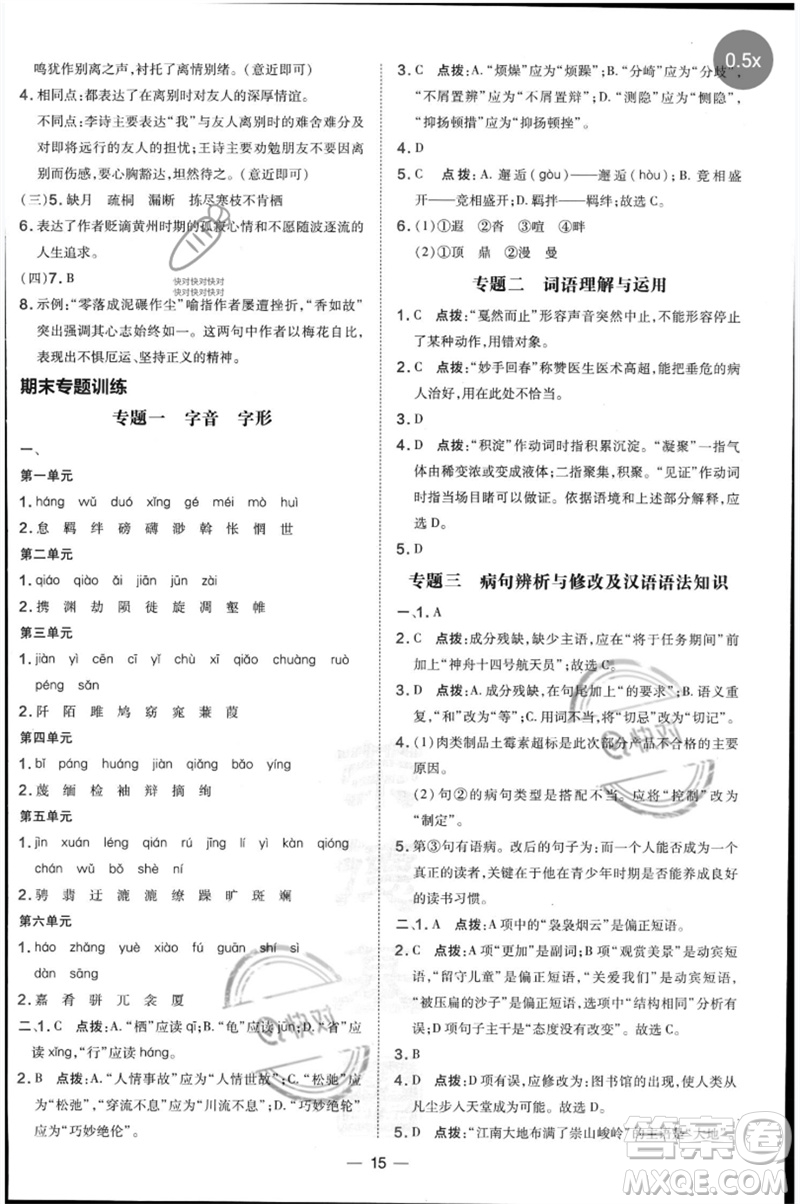 鸣犹作别离之声，衬托了离情别绪。（意近即可）
4. 相同点：都表达了在离别时对友人的深厚情谊。
不同点：李诗主要表达“我”与友人离别时的难舍难分以及对即将远行的友人的关心；王诗主要劝勉朋友不要因离别而伤感，应心胸豁达，坦然待之。（意近即可）
（三）5. 缺月 疏桐 漏断 拣尽寒枝不肯栖
6. 表达了作者贬谪黄州时期的孤寂心情和不愿随波逐流的
人生追求。
（四）7. B
快对快对快对
快对快对快对
8. 示例：“零落成泥碾作尘”喻指作者屡遭挫折，“香如故”
突出强调其心志始终如一。这两句中作者以梅花自比，
表现出不惧厄运、坚持正义的精神。
期末专题训练
专题一 字音 字形
一、
第一单元
1. háng wǔ duó xīng gé méi mò huì
2. 怠 羁 绊 磅 礴 渺 斡 怅 惘 世
第二单元
1. qiáo qiào āi āi jiāng jiān zhì
2. 携 渊 劫 陨 徙 旋 凋 壑 帷
第三单元
1. jiàn yì cēn cī yǐ chì cuàn huàn ruò
péng sǎn
2. 阡 陌 雎 鸠 窈 窕 蒹 葭
第四单元
1. bǐ páng huáng jiàn yīng qiáng bì
2. 蔑 缅 检 袖 辩 摘 绚
第五单元
1. jìn xuán léng qián rán yì kàn qióng
chán wǔ bǒ shè ní
2. 骋 翡 迂 漉 漉 缭 躁 旷 斑 斓
第六单元
1. háo zhǎng yuè xiào fú guān shí sì
dàn sāng
2. 嘉 肴 骈 兀 衾 厦
二、1. C 点拨：A.“栖”应读 qī；B.“龟”应读 jūn；D.“省”应
读 xǐng，“行”应读 háng。
2. B 点拨：A.“人情事故”应为“人情世故”；C.“松驰”应
为“松弛”，“穿流不息”应为“川流不息”；D.“巧妙绝轮”
应为“巧妙绝伦”。
0.5x
3. C 点拨：A.“烦燥”应为“烦躁”；B.“分崎”应为“分歧”，
“不屑置辨”应为“不屑置辩”；D.“测隐”应为“恻隐”，
“抑扬顿措”应为“抑扬顿挫”。
4. D
5. C 点拨：A. 邂逅（gòu）——邂逅（hòu）；B. 竞相盛
开——竞相盛开；D. 羁拌——羁绊；故选 C。
6. (1)①遐 ②沓 ③喧 ④畔
(2)①顶 鼎 ②漫 曼
专题二 词语理解与运用
1. C 点拨：“戛然而止”形容声音突然中止，不能形容停止
了某种动作，用错对象。
2. C 点拨：“妙手回春”称赞医生医术高超，能使垂危的病
人治好，用在此处不恰当。
3. D
4. D 点拨：“积淀”作动词时指积累沉淀。“凝聚”一指气
体由稀变浓或变成液体；二指聚集，积聚。“见证”作动词
时指当场目睹可以作证。依据语境和以上部分解释，应
选 D。
5. D
专题三 病句辨析与修改及汉语语法知识
一、1. A
2. C 点拨：成分残缺，缺少主语，应在“将于任务期间”前
加上“神舟十四号航天员”；故选 C。
3. D 点拨：A. 成分残缺，在句尾加上“的要求”；B. 语义重
复，“和”改为“等”；C. 用词不当，将“切忌”改为“切记”。
4. (1)肉类制品土霉素超标是此次部分产品不合格的主要
原因。
(2)句②的病句类型是搭配不当。应将“控制”改为
“制定”。
5. 第③句有语病。改后的句子为：而一个人能否成为一个
真正的读者，关键在于于他在青少年时期是否能养成良好
的读书习惯。
二、1. A 点拨：A 项中的“袅袅烟云”是偏正短语。
2. C 点拨：A 项“更加”是副词；B 项“观赏美景”是动宾短
语，“留守儿童”是偏正短语，“关爱生命”是动宾短语，
“被压扁的沙子”是偏正短语，“结构相同”这一判断有误；
D 项句子主干是“态度没有改变”。故选 A。
3. B
4. C 点拨：C 项有误，应修改为：图书馆的出现，使人类从
凡尘步入天堂成为可能。故选 C。
5. D 点拨：“江南大地布满了崇山峻岭”的主语是“大地”
15
快对
快对
答案圈
MXQE.COM